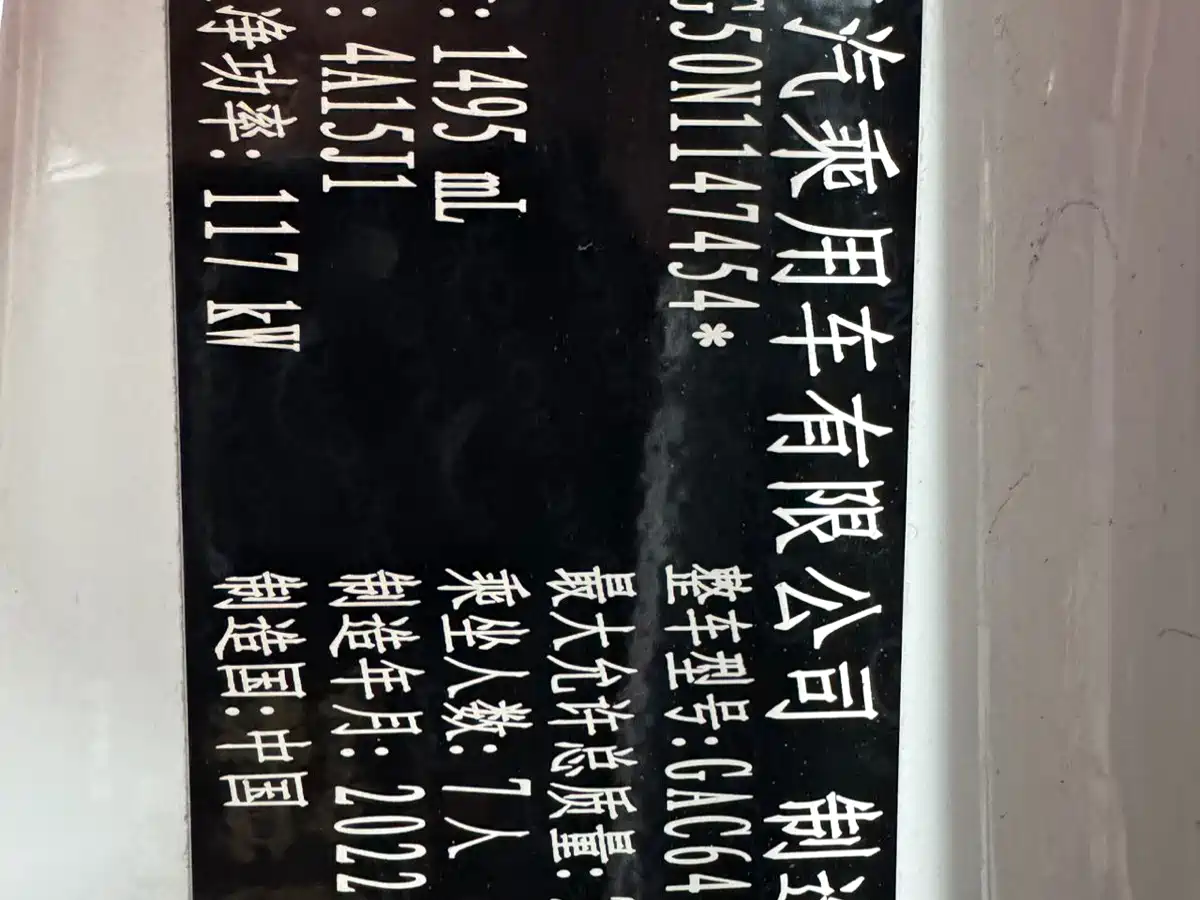 汽乘用车有限公司 制造
G50N114745 4*
整车型号:GAC64
最大允许总质量:
: 1495 mL
乘坐人数: 7人
: 4A15J1
制造年月: 2022
净功率: 117 kW
制造国:中国